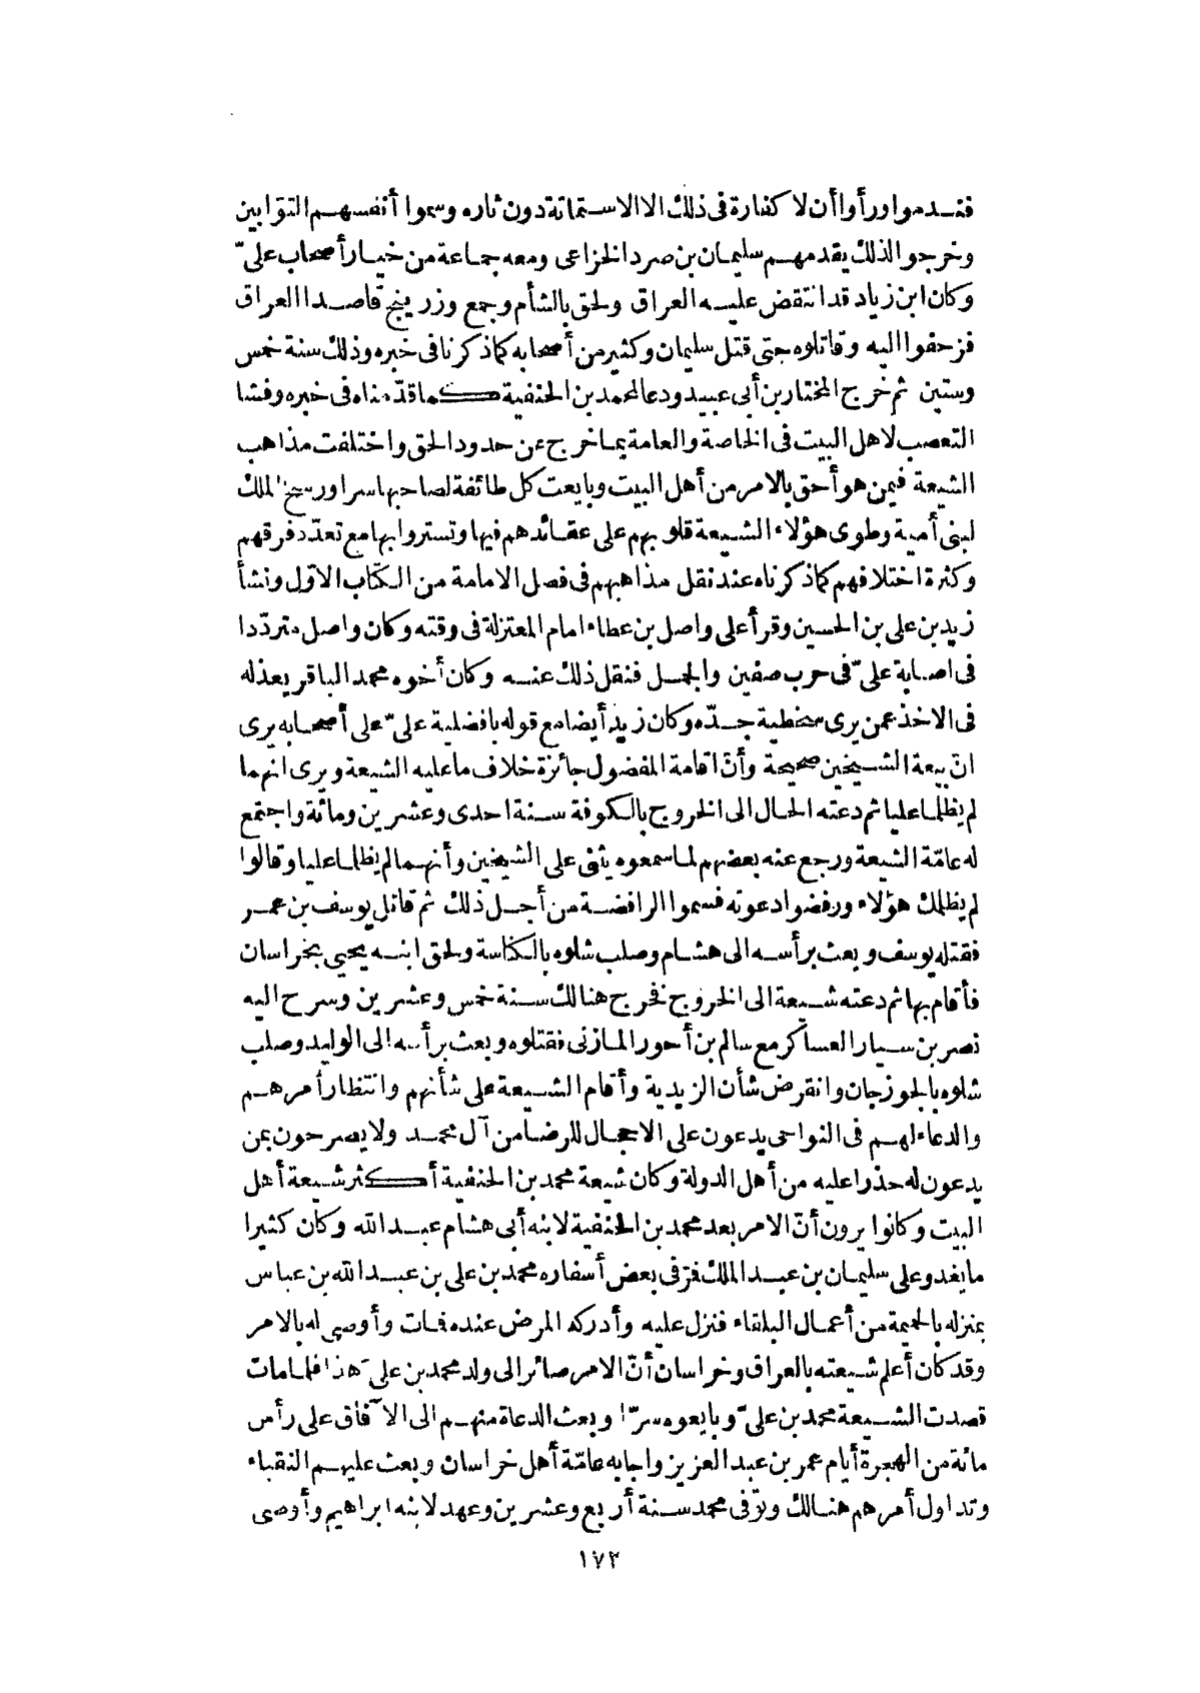 فتندموا ورأوا أن لا كفارة فى ذلك الا الاستماتة دون ثاره وسموا أنفسهم التوّابين
وخرجوا لذلك يقدمهم سليمان بن صرد الخزاعى ومعه جماعة من خيار أصحاب علىّ
وكان ابن زياد قد انتقض عليه العراق ولحق بالشأم وجمع وزر ينبج قاصدا العراق
فزحفوا اليه وقاتلوه حتى قتل سليمان وكثير من أصحابه كما ذكرنا فى خبره وذلك سنة خمس
وستين ثم خرج المختار بن أبى عبيد ودعا لمحمد بن الحنفية كما قدّمناه فى خبره وفشا
التعصب لاهل البيت فى الخاصة والعامة بما خرج عن حدود الحق واختلفت مذاهب
الشيعة فيمن هو أحق بالامر من أهل البيت وبايعت كل طائفة لصاحبها سرا ورسخ الملك
لبنى أمية وطوى هؤلاء الشيعة قلوبهم على عقائدهم فيها وتستروا بها مع تعدّد فرقهم
وكثرة اختلافهم كما ذكرناه عند نقل مذاهبهم فى فصل الامامة من الكتاب الاوّل ونشأ
زيد بن على بن الحسين وقرأ على واصل بن عطاء امام المعتزلة فى وقته وكان واصل متردّدا
فى اصابة علىّ فى حرب صفين والجمل فنقل ذلك عنه وكان أخوه محمد الباقر يعذله
فى الاخذ عمن يرى سخطية جدّه وكان زيد أيضا مع قوله بافضلية علىّ على أصحابه يرى
انّ بيعة الشيخين صحيحة وأنّ اقامة المفضول جائزة خلاف ما عليه الشيعة ويرى انهما
لم يظلما عليا ثم دعته الحال الى الخروج بالكوفة سنة احدى وعشرين ومائة واجتمع
له عامّة الشيعة ورجع عنه بعضهم لما سمعوه يثنى على الشيخين وأنهما لم يظلما عليا وقالوا
لم يظلمك هؤلاء ورفضوا دعوته فسموا الرافضة من أجل ذلك ثم قاتل يوسف بن عمر
فقتله يوسف وبعث برأسه الى هشام وصلب شلوه بالكناسة ولحق ابنه يحيى بخراسان
فأقام بها ثم دعته شيعة الى الخروج فخرج هنالك سنة خمس وعشرين وسرح اليه
نصر بن سيار العساكر مع سالم بن أحور المازنى فقتلوه وبعث برأسه الى الوليد وصلب
شلوه بالجوزجان وانقرض شأن الزيدية وأقام الشيعة على شأنهم وانتظار أمرهم
والدعاء لهم فى النواحى يدعون على الاجمال للرضا من آل محمد ولا يصرحون بمن
يدعون له حذرا عليه من أهل الدولة وكان شيعة محمد بن الحنفية أكثر شيعة أهل
البيت وكانوا يرون أنّ الامر بعد محمد بن الحنفية لابنه أبى هشام عبد الله وكان كثيرا
ما يغدو على سليمان بن عبد الملك فمرّ فى بعض أسفاره محمد بن على بن عبد الله بن عباس
بمنزله بالحميمة من أعمال البلقاء فنزل عليه وأدركه المرض عنده فمات وأوصى له بالامر
وقد كان أعلم شيعته بالعراق وخراسان أنّ الامر صائر الى ولد محمد بن علىّ هذا فلما مات
قصدت الشيعة محمد بن علىّ وبايعوه سرّا وبعث الدعاة منهم الى الآفاق على رأس
مائة من الهجرة أيام عمر بن عبد العزيز واجابه عامّة أهل خراسان وبعث عليهم النقباء
وتداول أمرهم هنالك وتوّفى محمد سنة أربع وعشرين وعهد لابنه ابراهيم وأوصى
١٧٣